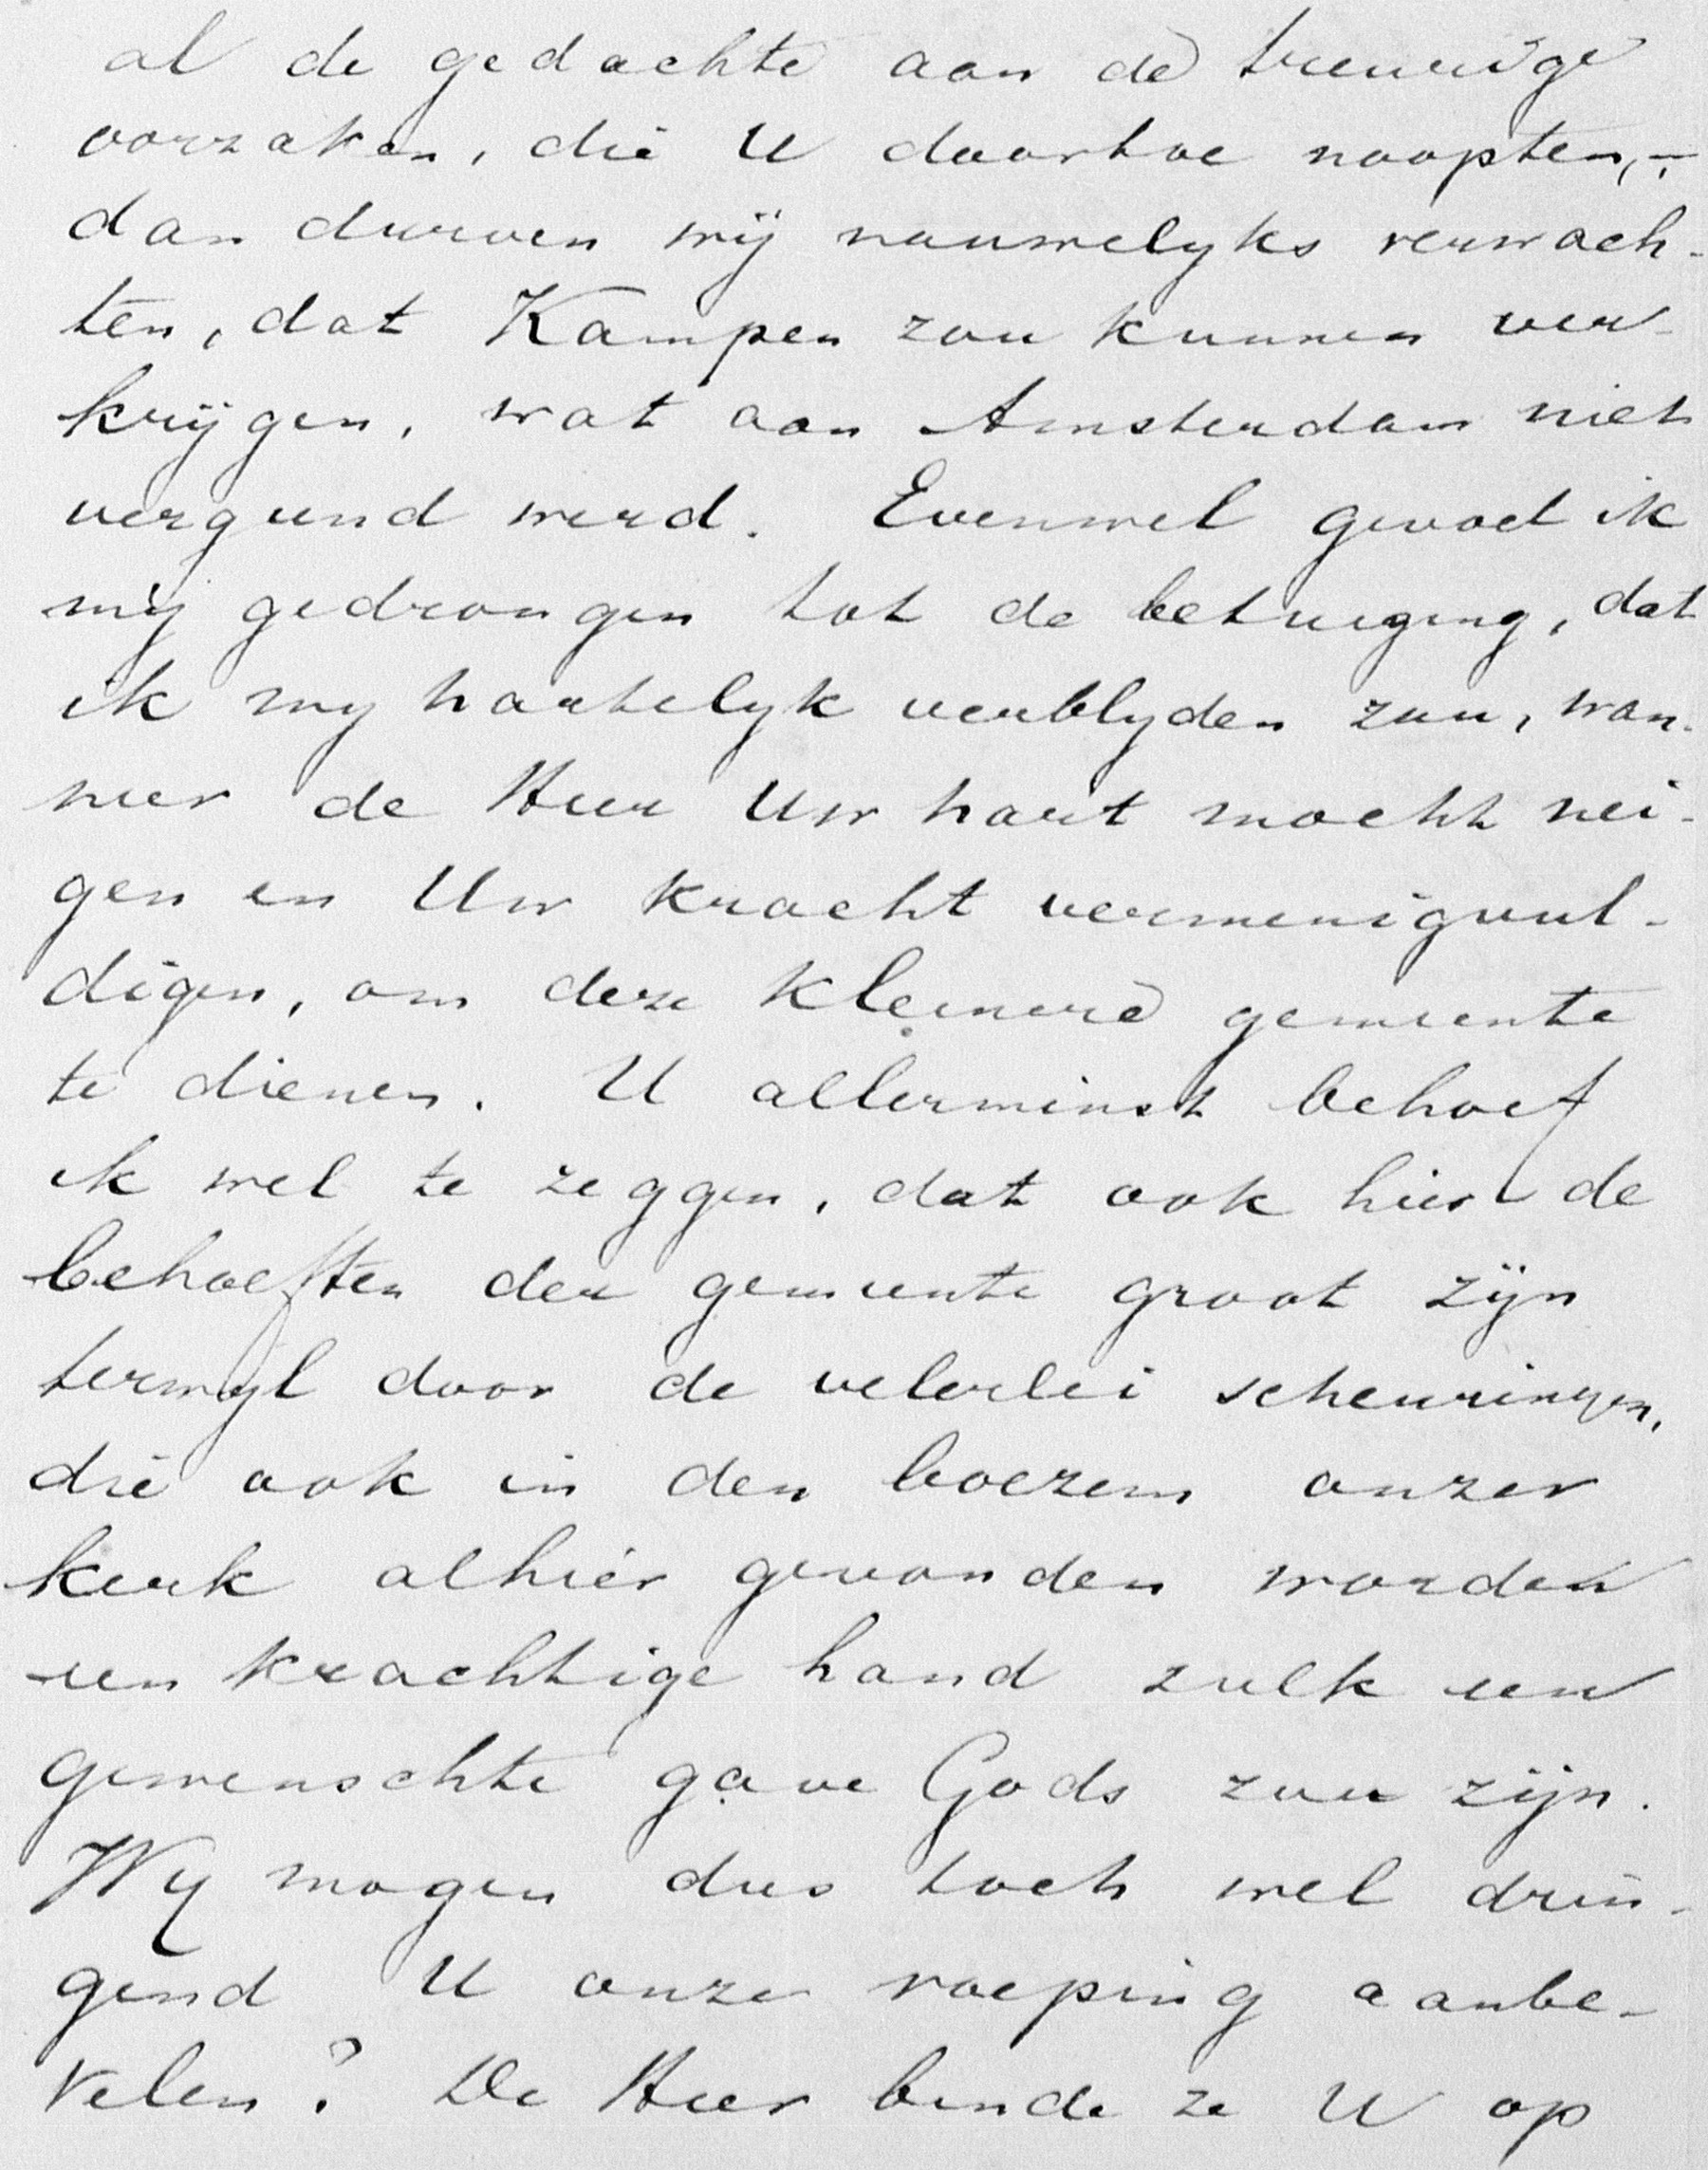 al de gedachte aan de treurige
oorzaken, die U daartoe noopten, –
dan durven wij nauwelyks verwach-
ten, dat Kampen zou kunnen ver-
krijgen, wat aan Amsterdam niet
vergund werd. Evenwel gevoel ik
mij gedrongen tot de betuiging, dat
ik my hartelyk verblyden zou, wan-
neer de Heer Uw hart mocht nei-
gen en Uw kracht vermenigvul-
digen, om deze kleinere gemeente
te dienen. U allerminst behoef
ik wel te zeggen, dat ook hier de
behoeften der gemeente groot zijn
terwyl door de velerlei scheuringen,
die ook in den boezem onzer
kerk alhier gevonden worden
een krachtige hand zulk een
gewenschte gave Gods zou zijn.
Wy mogen dus toch wel drin-
gend U onze roeping aanbe-
velen? De Heer binde ze U op